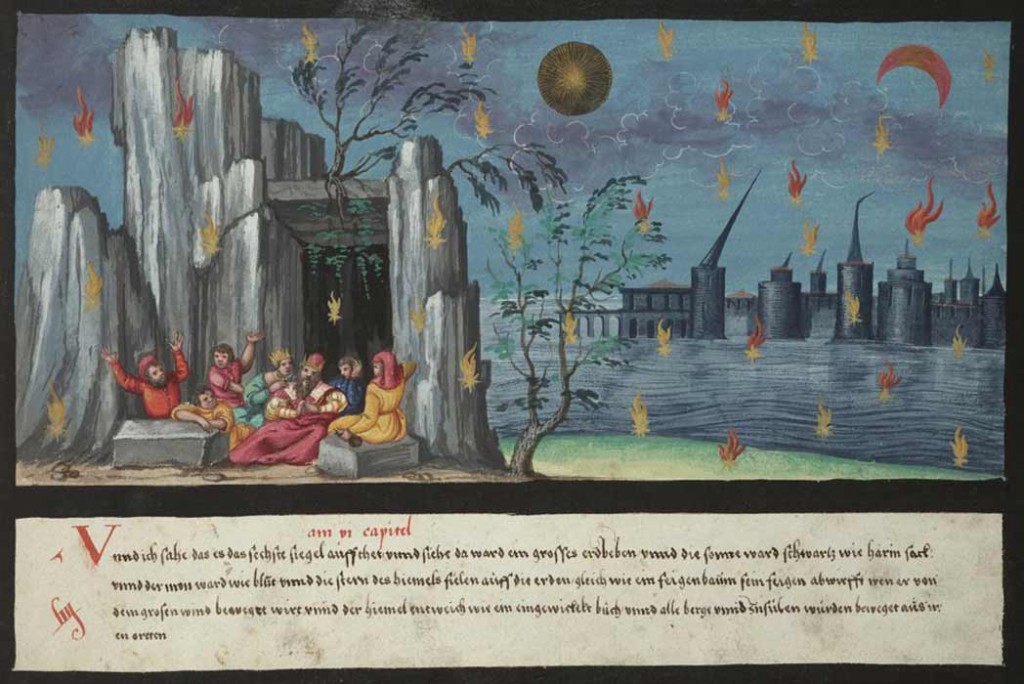 am vi capitel
Vnnd ich sahe das es das sechste siegel auffthet vnnd siehe da ward ein grosses erdbeben vnnd die sonne ward schwartz wie harin sack
vnnd der mon ward wie blůt vnnd die stern des hiemels fielen auff die erden gleich wie ein feigenbaum sein feigen abwrefft wen er von
dem grosen wind bewegt wirt vnnd der hiemel entweich wie ein eingewickelt bůch vnnd alle berge vnnd Insůlen wurden beweget aus ir
en orten